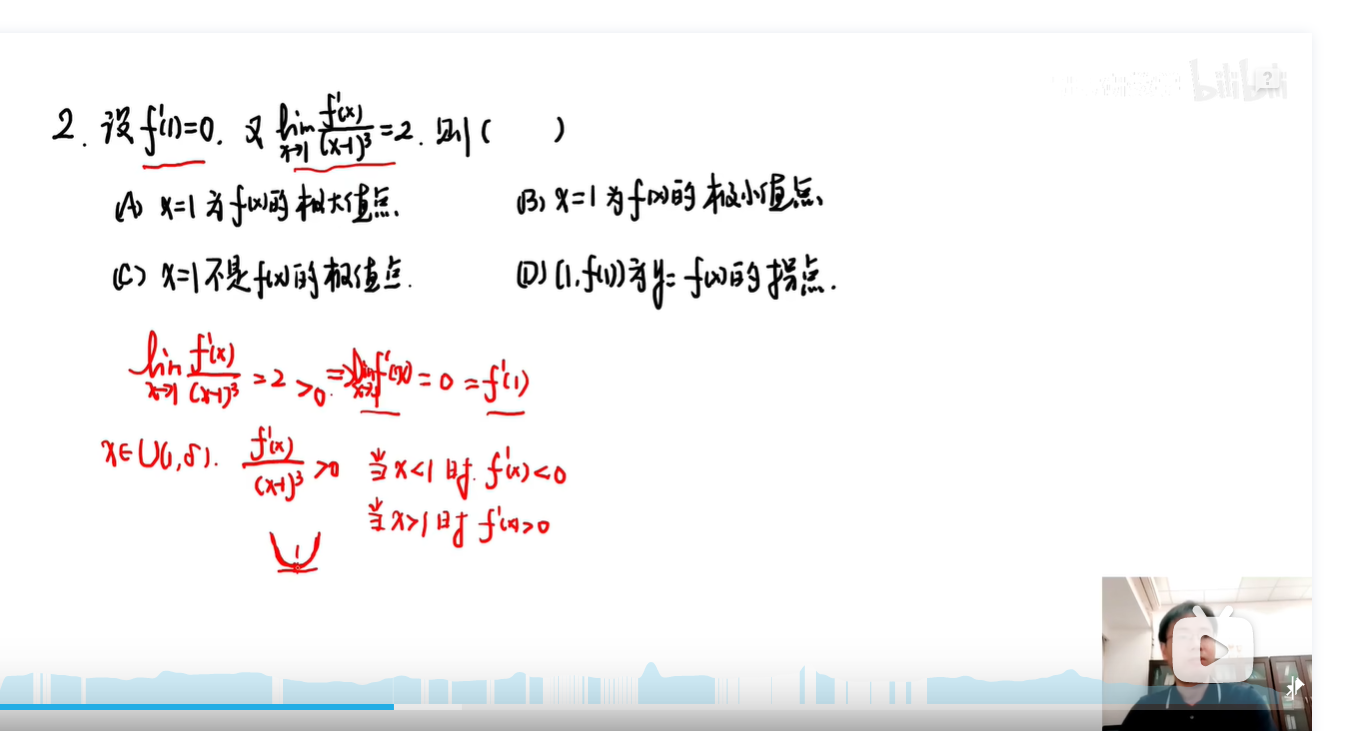 bilibili
2. 设 f'(1)=0. 又 lim x→1 f'(x)/(x-1)³ = 2. 则 ( )
(A) x=1 为 f(x) 的极大值点. (B) x=1 为 f(x) 的极小值点.
(C) x=1 不是 f(x) 的极值点. (D) (1, f(1)) 为 y= f(x) 的拐点.
lim x→1 f'(x)/(x-1)³ = 2 >0. ⇒ lim x→1 f'(x) = 0 = f'(1)
x∈U(1,δ). f'(x)/(x-1)³ >0 当 x<1 时. f'(x)<0
当 x>1 时 f'(x)>0
1